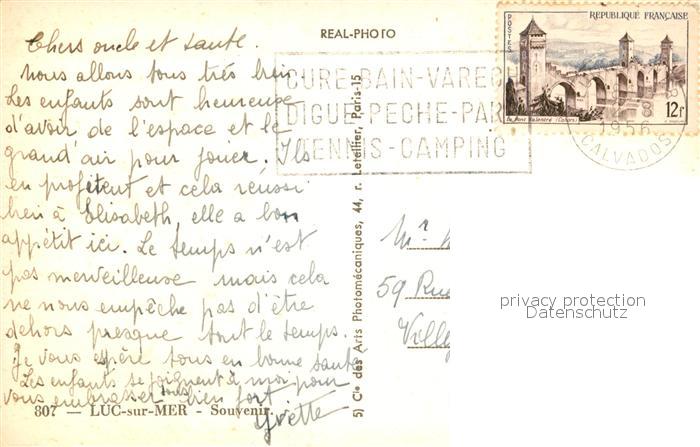 REAL-PHOTO
Chers oncle et tante.
Nous allons tous très bien
Les enfants sont heureuse
d'avoir de l'espace et le
grand'air pour jouer. Ils
en profitent et cela réussi
bien à Elisabeth, elle a bon
appétit ici. Le temps n'est
pas merveilleuse mais cela
ne nous empêche pas d'être
dehors presque tout le temps.
Je vous espère tous en bonne santé
Les enfants se joignent à moi pour
vous embrasser tous bien fort
Yvette
807 — LUC-sur-MER - Souvenir.
5) Cie des Arts Photomécaniques, 44, r. Letellier, Paris-15
CURE-BAIN-VARECH
DIGUE-PECHE-PAR
TENNIS-CAMPING
POSTES
REPUBLIQUE FRANÇAISE
12F
Le Pont Valentré (Cahors)
1956
CALVADOS
Mr
59 Rue
privacy protection
Datenschutz